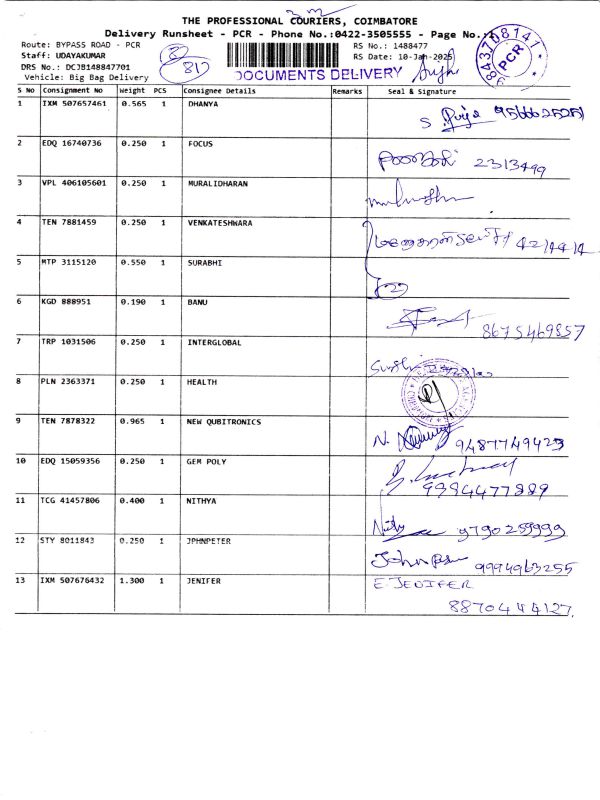 THE PROFESSIONAL COURIERS, COIMBATORE
Delivery Runsheet - PCR - Phone No.:0422-3505555 - Page No.:
Route: BYPASS ROAD - PCR
RS No.: 1488477
Staff: UDAYAKUMAR
RS Date: 10-Jan-2025
DRS No.: DCJB148847701
Vehicle: Big Bag Delivery
DOCUMENTS DELIVERY
PCR
S No Consignment No Weight PCS Consignee Details Remarks Seal & Signature
1 IXM 507657461 0.565 1 DHANYA
2 EDQ 16740736 0.250 1 FOCUS 2313499
3 VPL 406105601 0.250 1 MURALIDHARAN
4 TEN 7881459 0.250 1 VENKATESHWARA
5 MTP 3115120 0.550 1 SURABHI
6 KGD 888951 0.190 1 BANU 8675469857
7 TRP 1031506 0.250 1 INTERGLOBAL
8 PLN 2363371 0.250 1 HEALTH
9 TEN 7878322 0.965 1 NEW QUBITRONICS 9487749429
10 EDQ 15059356 0.250 1 GEM POLY 9994477889
11 TCG 41457806 0.400 1 NITHYA 9790259999
12 STY 8011843 0.250 1 JPHNPETER 9994963255
13 IXM 507676432 1.300 1 JENIFER E. JENIFER
8870444127